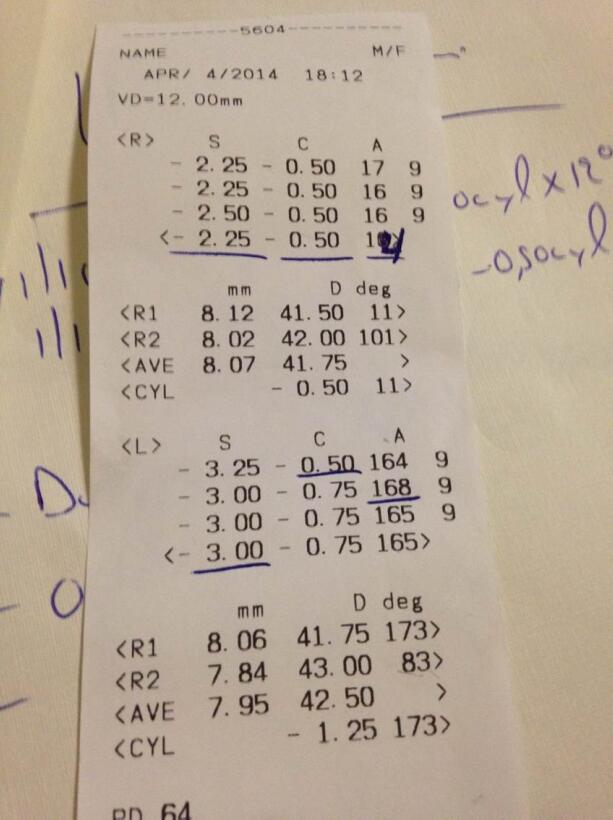 ----------5604----------
NAME M/F
APR/ 4/2014 18:12
VD=12.00mm
<R> S C A
- 2.25 - 0.50 17 9
- 2.25 - 0.50 16 9
- 2.50 - 0.50 16 9
<- 2.25 - 0.50
mm D deg
<R1 8.12 41.50 11>
<R2 8.02 42.00 101>
<AVE 8.07 41.75 >
<CYL - 0.50 11>
<L> S C A
- 3.25 - 0.50 164 9
- 3.00 - 0.75 168 9
- 3.00 - 0.75 165 9
<- 3.00 - 0.75 165>
mm D deg
<R1 8.06 41.75 173>
<R2 7.84 43.00 83>
<AVE 7.95 42.50 >
<CYL - 1.25 173>
PD 64
ocyl x 12°
-0,50cyl